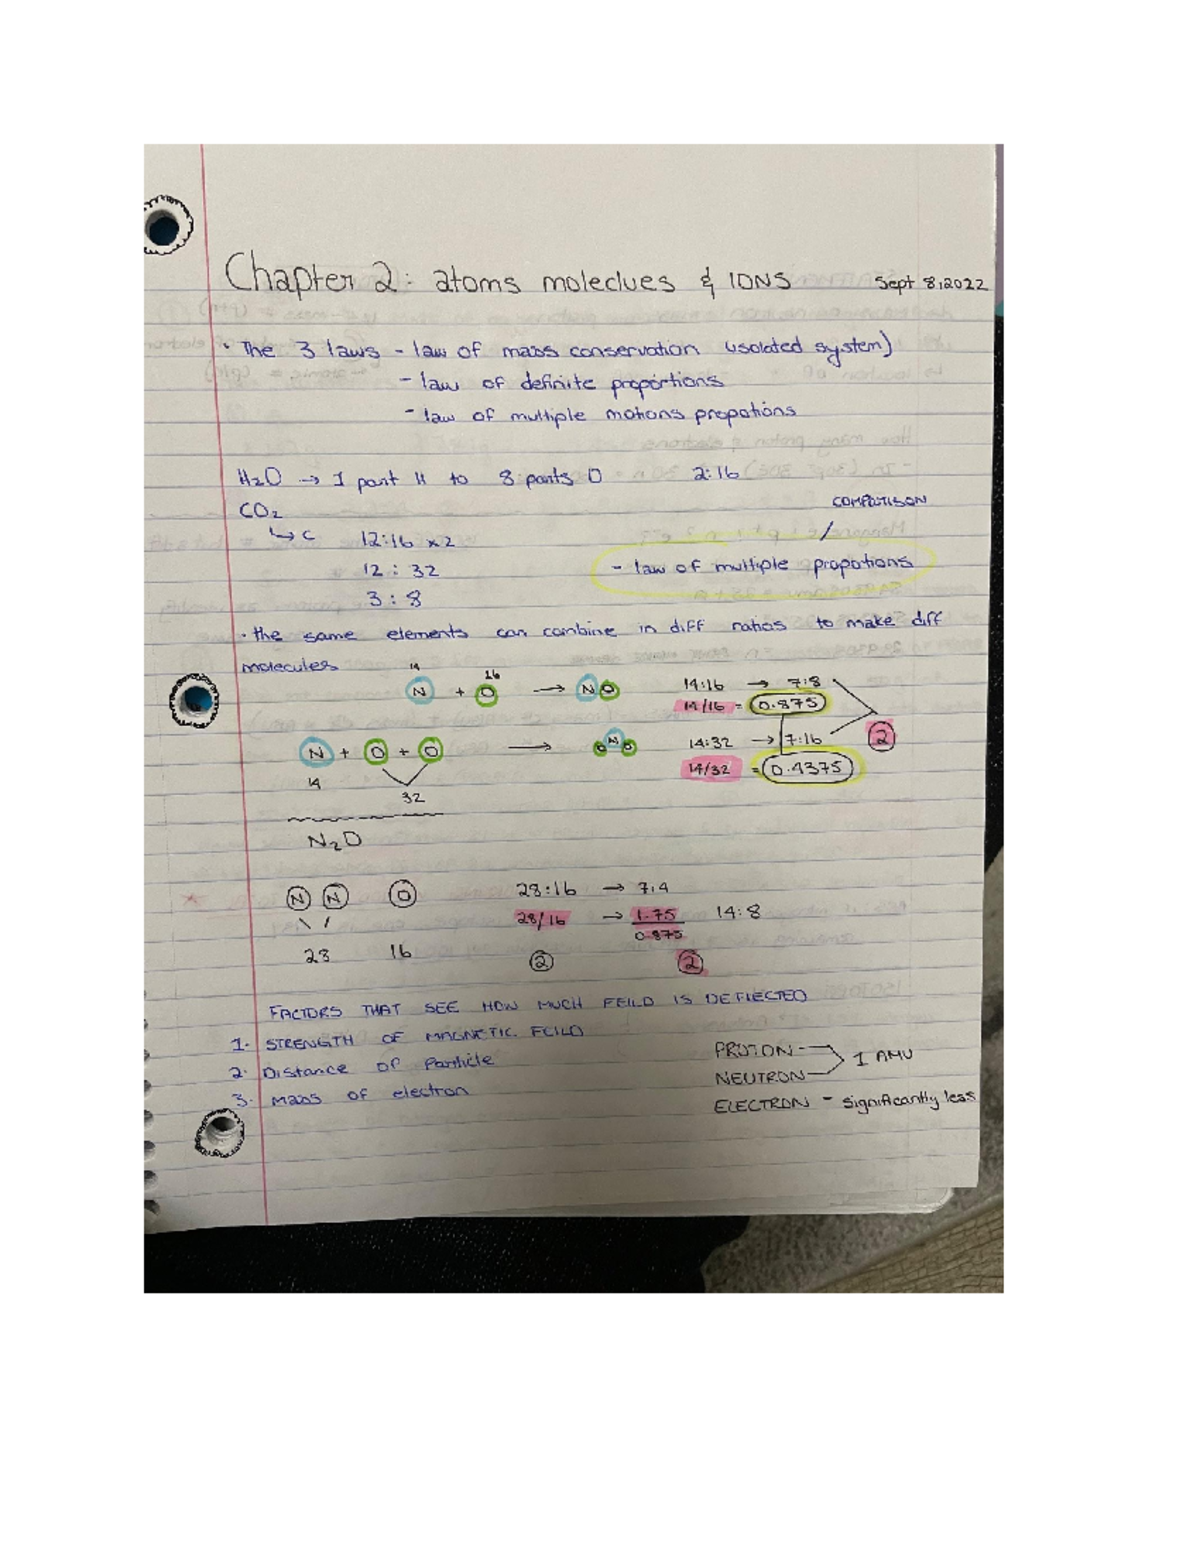 Chapter 2: atoms moleclues & IONS Sept 8, 2022
• The 3 laws - law of mass conservation (isolated system)
- law of definite proportions
- law of multiple motions propotions
H₂O → 1 part H to 8 parts O 2:16
CO₂ COMPARISON
↳ C 12:16 x2 /
12 : 32 - law of multiple propotions
3 : 8
• the same elements can combine in diff ratios to make diff
molecules
14 16
N + O → NO 14:16 → 7:8
14/16 = 0.875
N + O + O → O N O 14:32 → 7:16 2
14/32 = 0.4375
14 32
N₂O
N N O 28:16 → 7:4
28/16 → 1.75 14:8
0.875
28 16 2 2
FACTORS THAT SEE HOW MUCH FEILD IS DEFLECTED
1. STRENGTH OF MAGNETIC FEILD
2. Distance of Particle
3. Mass of electron
PROTON
NEUTRON 1 AMU
ELECTRON - significantly less